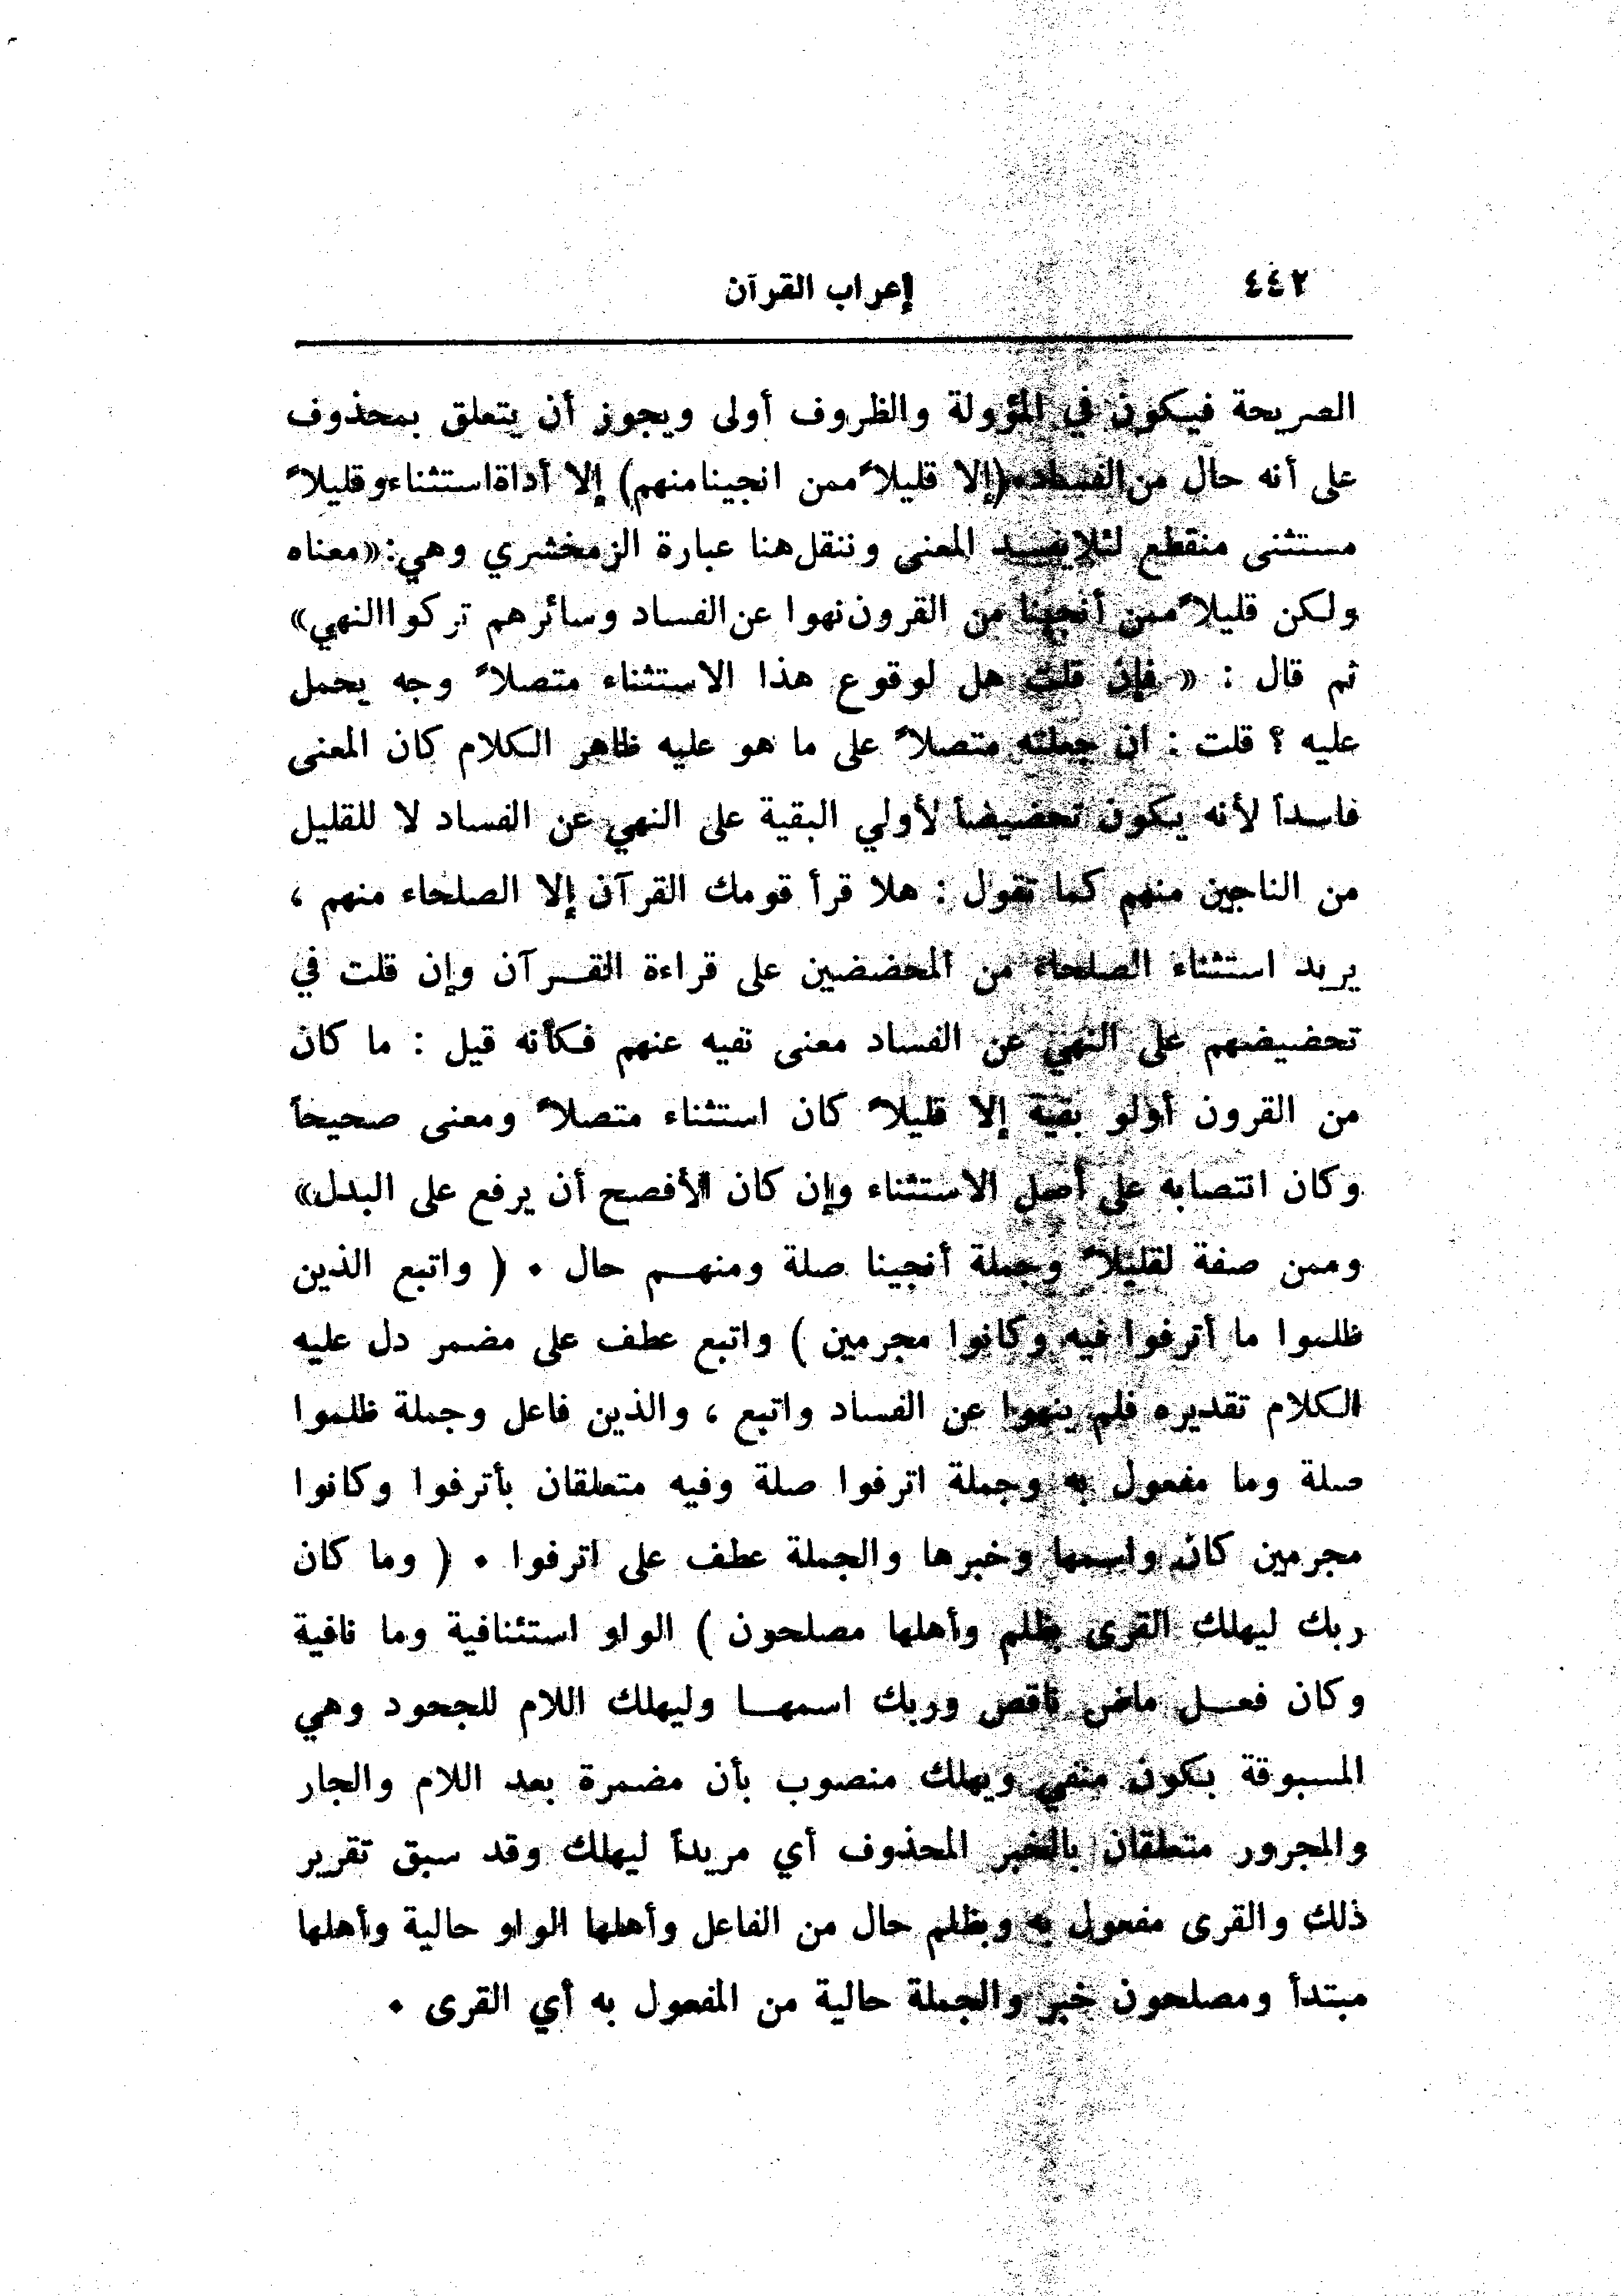 ٤٤٢
إعراب القرآن
الصريحة فيكون في المؤولة والظروف أولى ويجوز أن يتعلق بمحذوف
على أنه حال من الفساد ٠ (إلا قليلا ً ممن انجينا منهم) إلا أداة استثناء وقليلا ً
مستثنى منقطع لئلا يفسد المعنى وننقل هنا عبارة الزمخشري وهي : «معناه
ولكن قليلا ً ممن أنجينا من القرون نهوا عن الفساد وسائرهم تركوا النهي»
ثم قال : « فإن قلت هل لوقوع هذا الاستثناء متصلا ً وجه يحمل
عليه ؟ قلت : ان جعلته متصلا ً على ما هو عليه ظاهر الكلام كان المعنى
فاسداً لأنه يكون تحضيضاً لأولي البقية على النهي عن الفساد لا للقليل
من الناجين منهم كما تقول : هلا قرأ قومك القرآن إلا الصلحاء منهم ،
يريد استثناء الصلحاء من المحضضين على قراءة القـرآن وإن قلت في
تحضيضهم على النهي عن الفساد معنى نفيه عنهم فكأنه قيل : ما كان
من القرون أولو بقية إلا قليلا ً كان استثناء متصلا ً ومعنى صحيحاً
وكان انتصابه على أصل الاستثناء وإن كان الأفصح أن يرفع على البدل»
وممن صفة لقليلا ً وجملة أنجينا صلة ومنهـم حال ٠ ( واتبع الذين
ظلموا ما أترفوا فيه وكانوا مجرمين ) واتبع عطف على مضمر دل عليه
الكلام تقديره فلم ينهوا عن الفساد واتبع ، والذين فاعل وجملة ظلموا
صلة وما مفعول به وجملة اترفوا صلة وفيه متعلقان بأترفوا وكانوا
مجرمين كان واسمها وخبرها والجملة عطف على اترفوا ٠ ( وما كان
ربك ليهلك القرى بظلم وأهلها مصلحون ) الواو استئنافية وما نافية
وكان فعـل ماض ناقص وربك اسمهـا وليهلك اللام للجحود وهي
المسبوقة بكون منفي ويهلك منصوب بأن مضمرة بعد اللام والجار
والمجرور متعلقان بالخبر المحذوف أي مريداً ليهلك وقد سبق تقرير
ذلك والقرى مفعول به وبظلم حال من الفاعل وأهلها الواو حالية وأهلها
مبتدأ ومصلحون خبر والجملة حالية من المفعول به أي القرى ٠